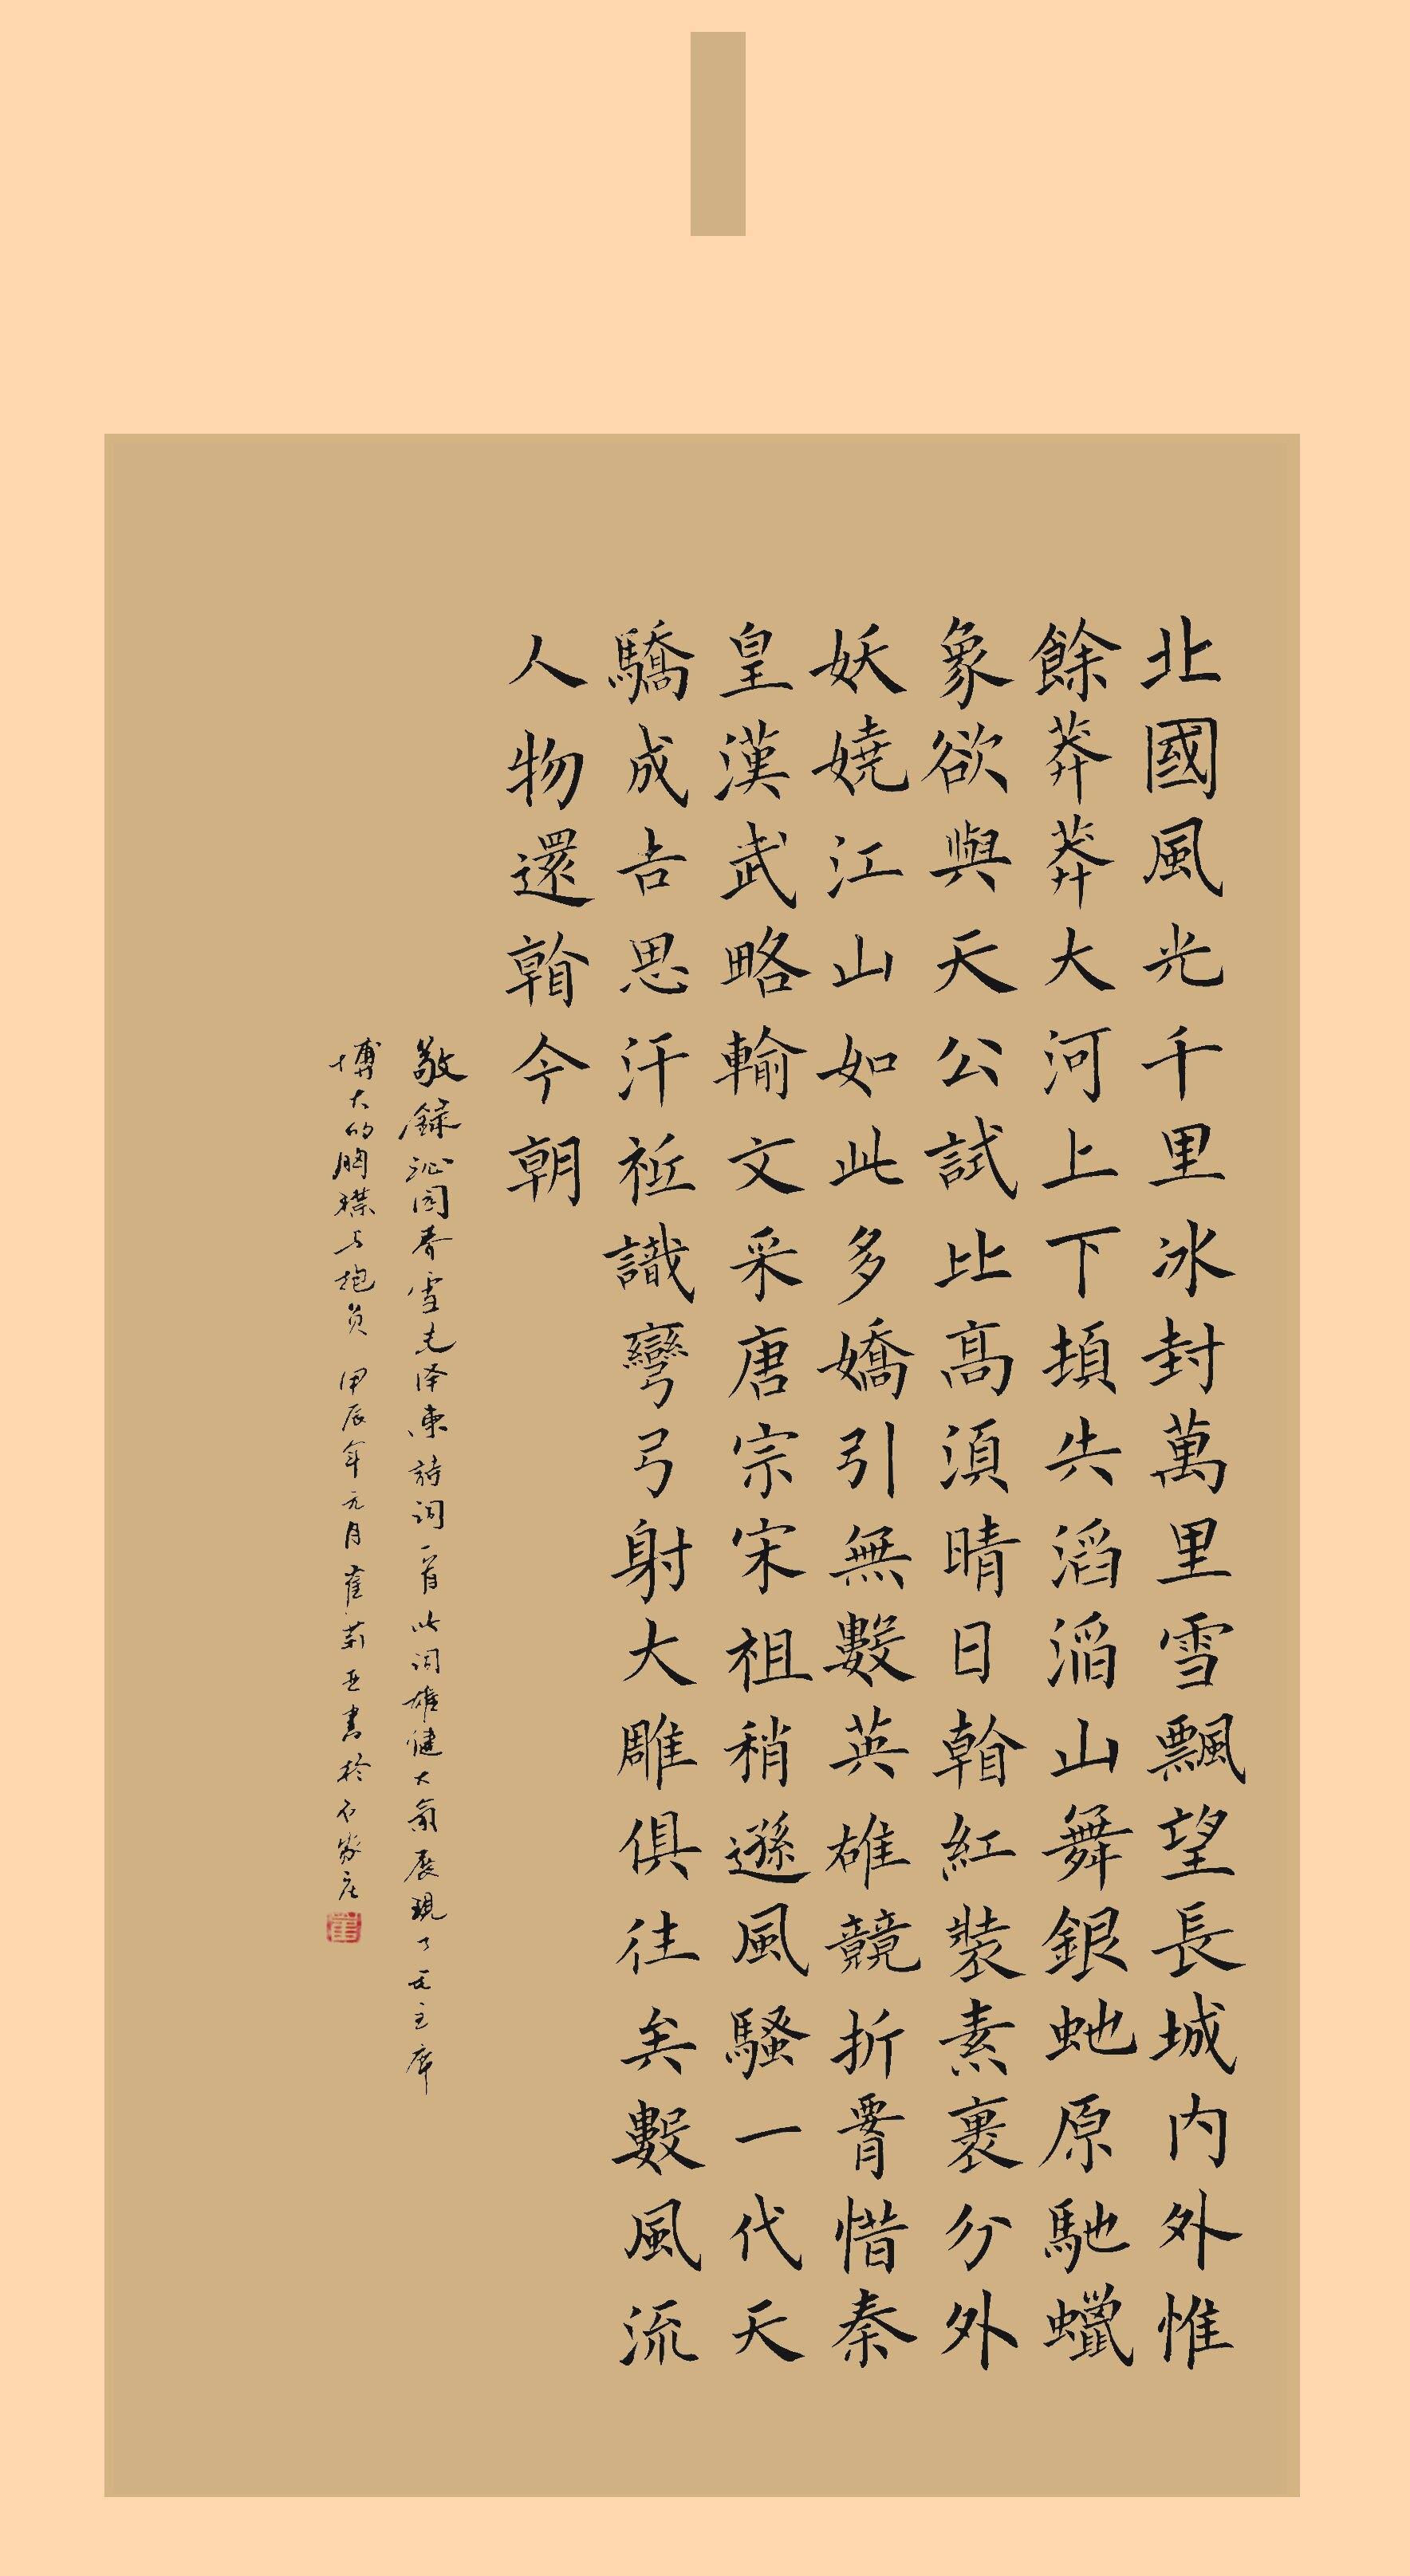 北國風光千里冰封萬里雪飄望長城内外惟
餘莽莽大河上下頓失滔滔山舞銀虵原馳蠟
象欲與天公試比髙須晴日看紅裝素裹分外
妖嬈江山如此多嬌引無數英雄競折腰惜秦
皇漢武略輸文采唐宗宋祖稍遜風騷一代天
驕成吉思汗祗識彎弓射大雕俱往矣數風流
人物還看今朝
敬録沁园春雪毛泽東詩词一首此词雄健大氣展現了毛主席
博大的胸襟与抱负 甲辰年元月崔莉亚書於石家庄